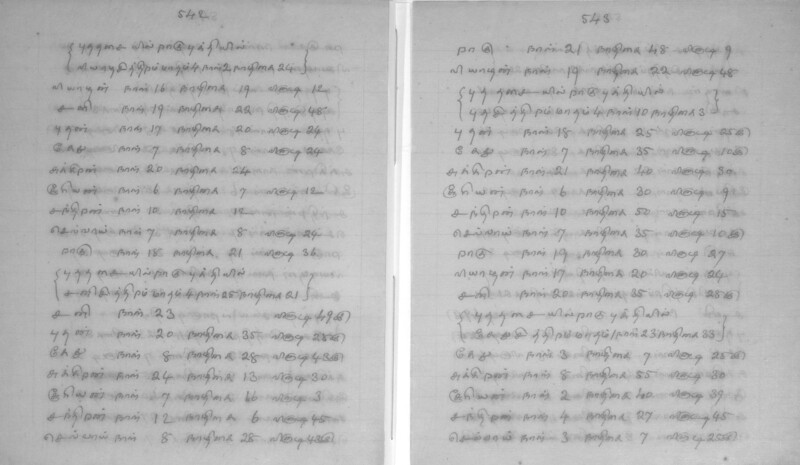 542
{புதசை யில் ராகு புக்தியில்
{வியாழ சித்திரம் மாதம் 4 நாள் 2 நாழிகை 24}
வியாழன் நாள் 16 நாழிகை 19 விகடி 12
சனி நாள் 19 நாழிகை 22 விகடி 48
புதன் நாள் 17 நாழிகை 20 விகடி 24
கேது நாள் 7 நாழிகை 8 விகடி 24
சுக்கிரன் நாள் 20 நாழிகை 24
சூரியன் நாள் 6 நாழிகை 7 விகடி 12
சந்திரன் நாள் 10 நாழிகை 12
செவ்வாய் நாள் 7 நாழிகை 8 விகடி 24
ராகு நாள் 18 நாழிகை 21 விகடி 36
{புதசை யில் ராகு புக்தியில்
{சனி சித்திரம் மாதம் 4 நாள் 25 நாழிகை 21}
சனி நாள் 23 விகடி 49
புதன் நாள் 20 நாழிகை 35 விகடி 25
கேது நாள் 8 நாழிகை 28 விகடி 43
சுக்கிரன் நாள் 24 நாழிகை 13 விகடி 30
சூரியன் நாள் 7 நாழிகை 16 விகடி 3
சந்திரன் நாள் 12 நாழிகை 6 விகடி 45
செவ்வாய் நாள் 8 நாழிகை 28 விகடி 43
543
ராகு நாள் 21 நாழிகை 48 விகடி 9
வியாழன் நாள் 19 நாழிகை 22 விகடி 48
{புதசை யில் ராகு புக்தியில்
{புத சித்திரம் மாதம் 4 நாள் 10 நாழிகை 3}
புதன் நாள் 18 நாழிகை 25 விகடி 25
கேது நாள் 7 நாழிகை 35 விகடி 10
சுக்கிரன் நாள் 21 நாழிகை 40 விகடி 30
சூரியன் நாள் 6 நாழிகை 30 விகடி 9
சந்திரன் நாள் 10 நாழிகை 50 விகடி 15
செவ்வாய் நாள் 7 நாழிகை 35 விகடி 10
ராகு நாள் 19 நாழிகை 30 விகடி 27
வியாழன் நாள் 17 நாழிகை 20 விகடி 24
சனி நாள் 20 நாழிகை 35 விகடி 25
{புதசை யில் ராகு புக்தியில்
{கேது சித்திரம் மாதம் 1 நாள் 23 நாழிகை 33}
கேது நாள் 3 நாழிகை 7 விகடி 25
சுக்கிரன் நாள் 8 நாழிகை 55 விகடி 30
சூரியன் நாள் 2 நாழிகை 40 விகடி 39
சந்திரன் நாள் 4 நாழிகை 27 விகடி 45
செவ்வாய் நாள் 3 நாழிகை 7 விகடி 25